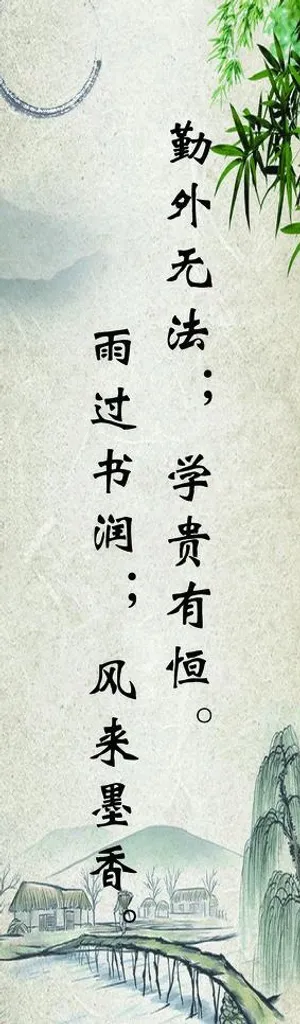 勤外无法；学贵有恒。
雨过书润；风来墨香。